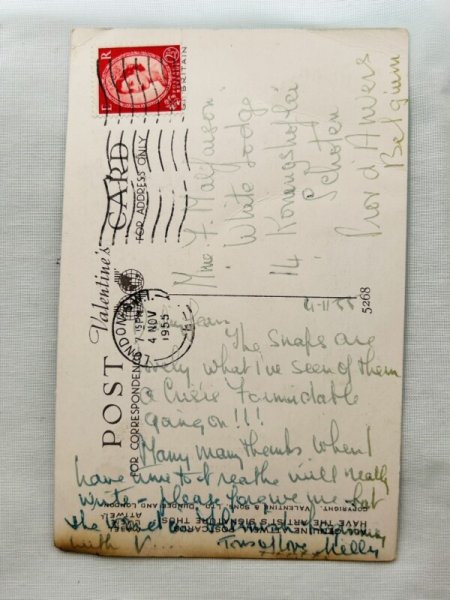 E R
2½D
GT. BRITAIN
Valentine's
POST CARD
FOR CORRESPONDENCE
FOR ADDRESS ONLY
LONDON
7 15 PM
4 NOV
1955
Mme F.
White Lodge
14
Schoten
Prov d'Anvers
Belgium
4-11-55
The snaps are
lovely what I've seen of them
a Cuisine Formidable
going on!!!
Many many thanks. When I
have time to breathe will really
write - please forgive me but
the
with
Tons of love
5268
HAVE THE ARTIST'S SIGNATURE THUS:
ATTWELL
COPYRIGHT, VALENTINE & SONS LTD., DUNDEE AND LONDON